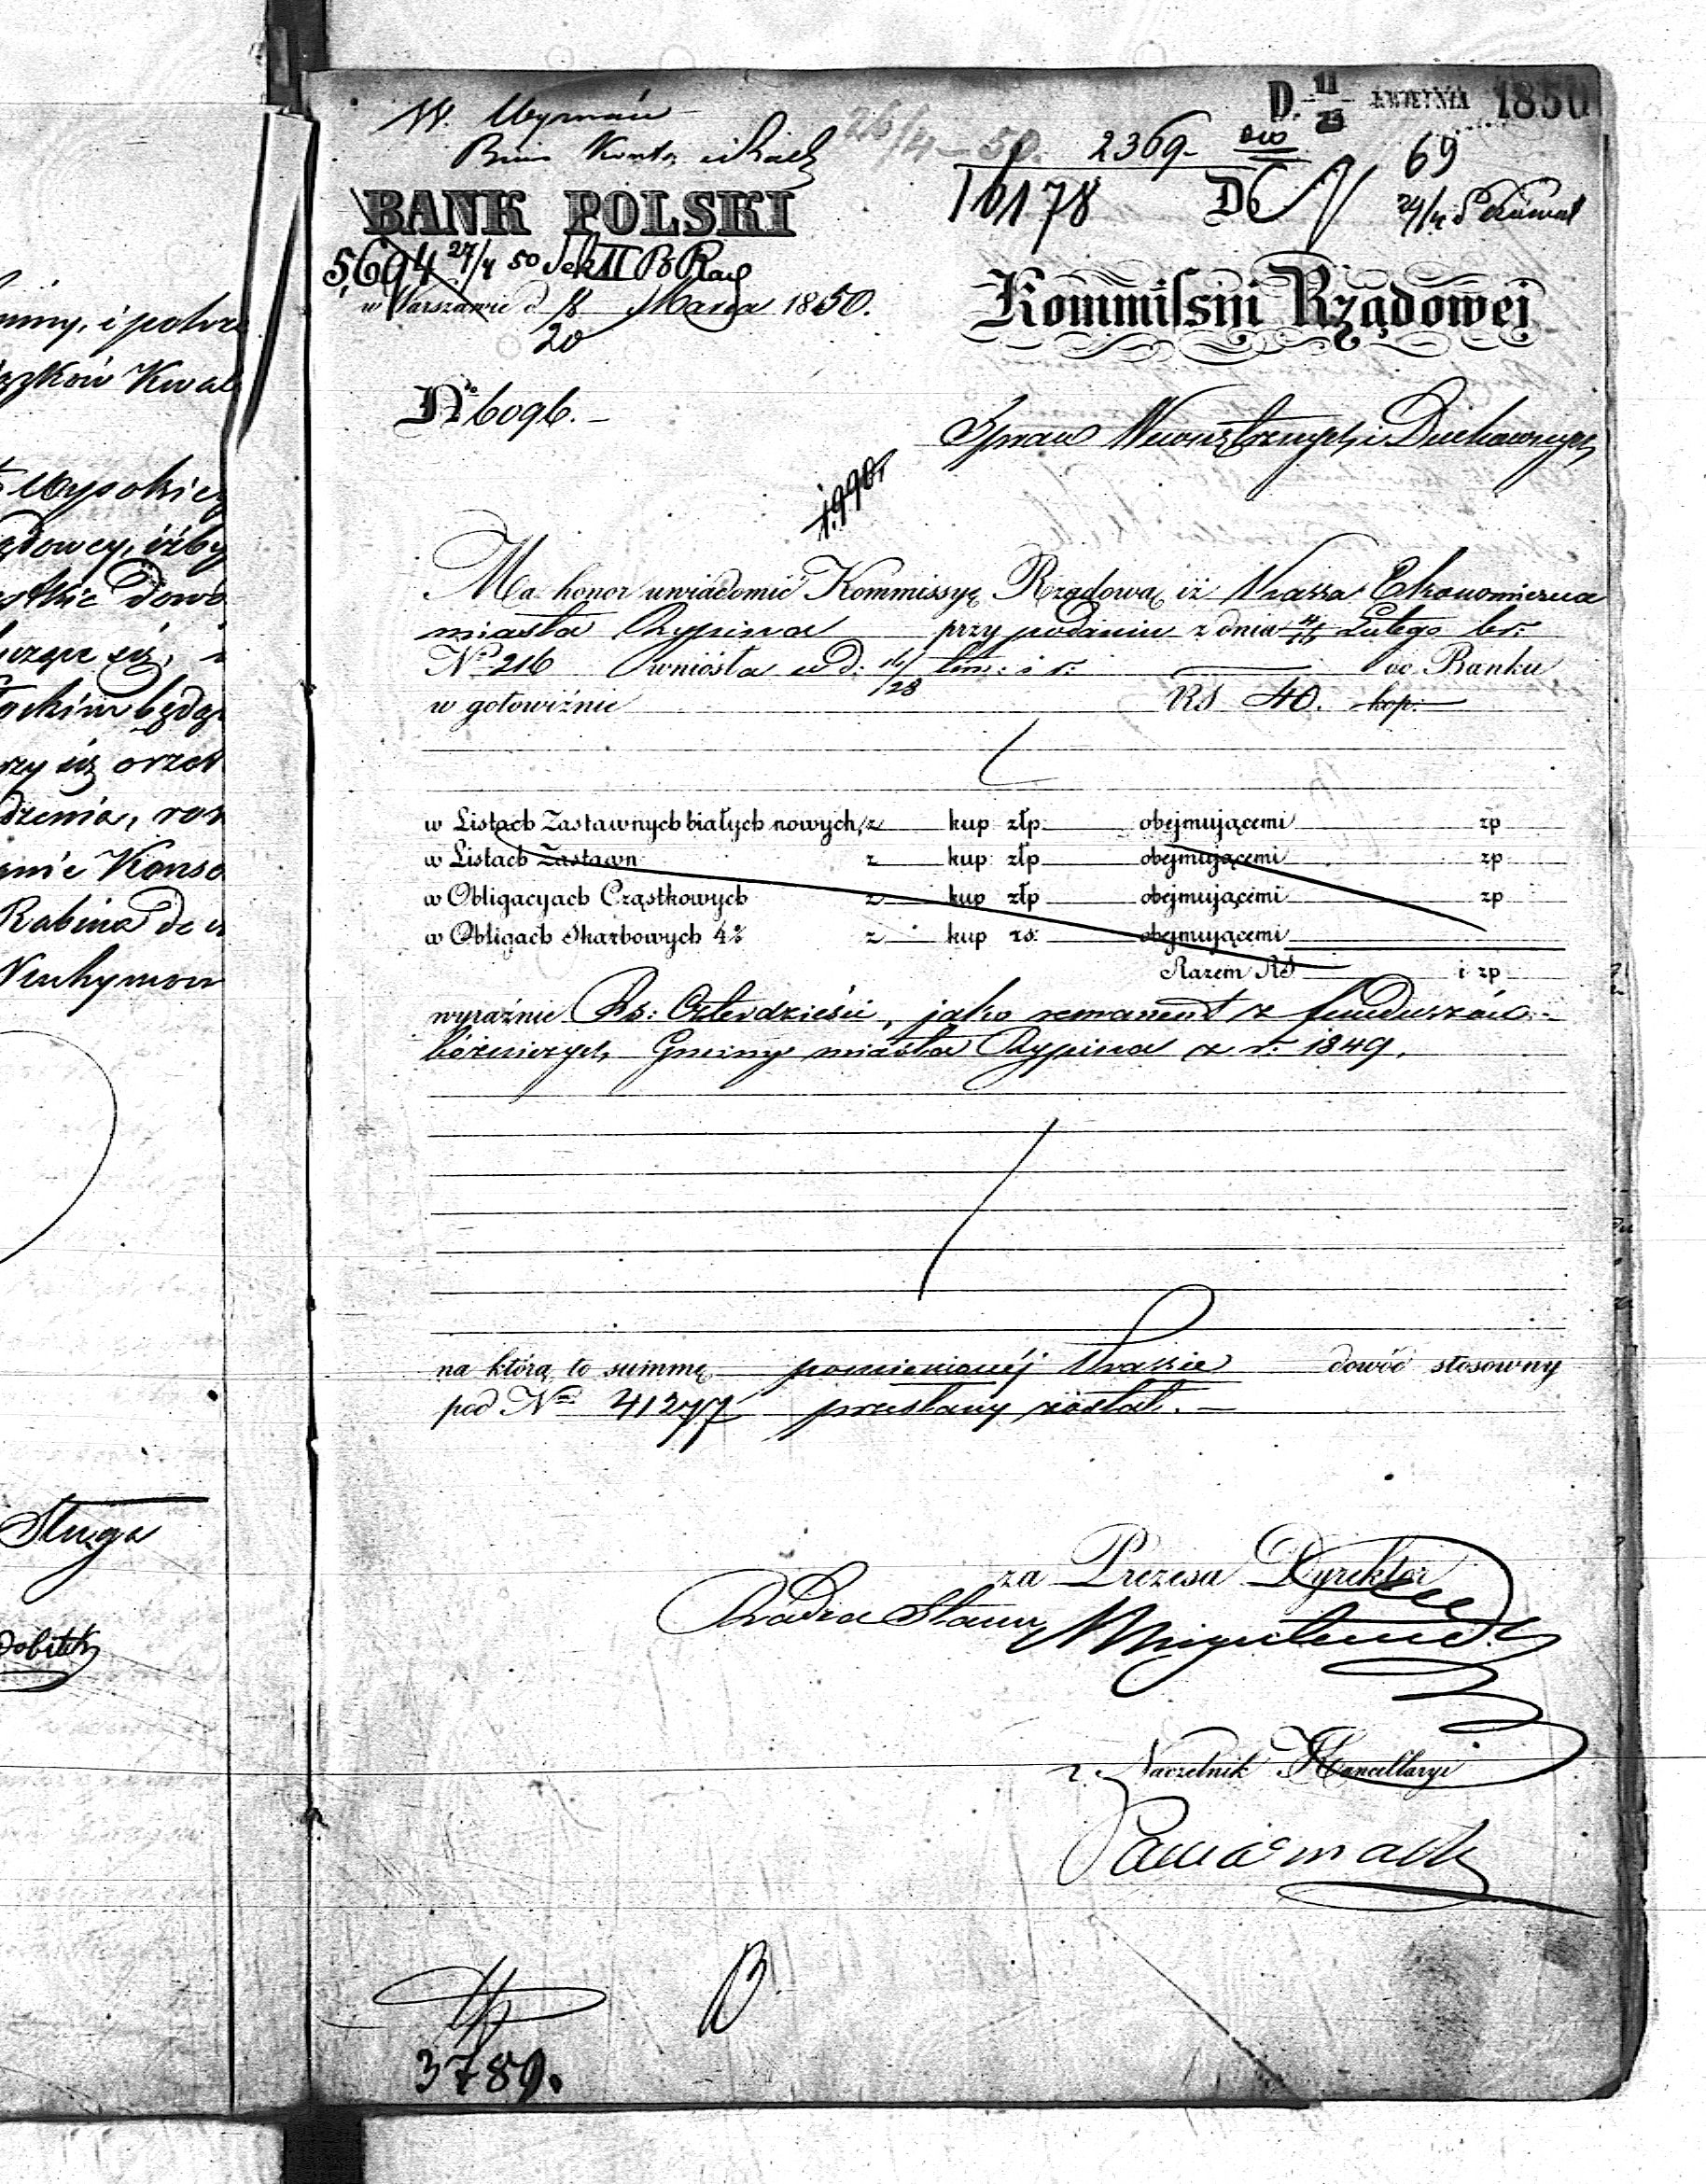 D. 11/23 KWIETNIA 1850
W. Wyrmán
26/4 – 50. 2369
69
16178
BANK POLSKI
5,694 27/4 50 Sek II B Rach
w Warszawie d 8/20 Marca 1850.
Kommissyi Rządowej
No 6096. –
Spraw Wewnętrznych i Duchownych
1,990
Ma honor uwiadomić Kommissyę Rządową iż Kassa Ekonomiczna
miasta Rypina przy podaniu z dnia Lutego br:
No 216 wniosła w d: 16/28 tm: i r: do Banku
w gotowiźnie RS 40. kop:
w Listach Zastawnych białych nowych, z kup złp obejmującemi zp
w Listach Zastawn z kup złp obejmującemi zp
w Obligacyach Cząstkowych z kup złp obejmującemi zp
w Obligach Skarbowych 4% z kup rs: obejmującemi
Razem RS i zp
wyraźnie Rs: Czterdzieści, jako remanent z funduszów
bóżniczych Gminy miasta Rypina z r: 1849.
na którą to summę pomienionéj Kassie dowód stosowny
pod No 41277 przesłany został. –
za Prezesa Dyrektor
Radca Stanu
z. Naczelnik Kancellaryi
B.
3789.
miny, i potrz
ązków Kwal
Wysokiey
ądowey, iżby
będąc
rzy się orze
dzenia, roz
Konso
Rabina do
Sługa